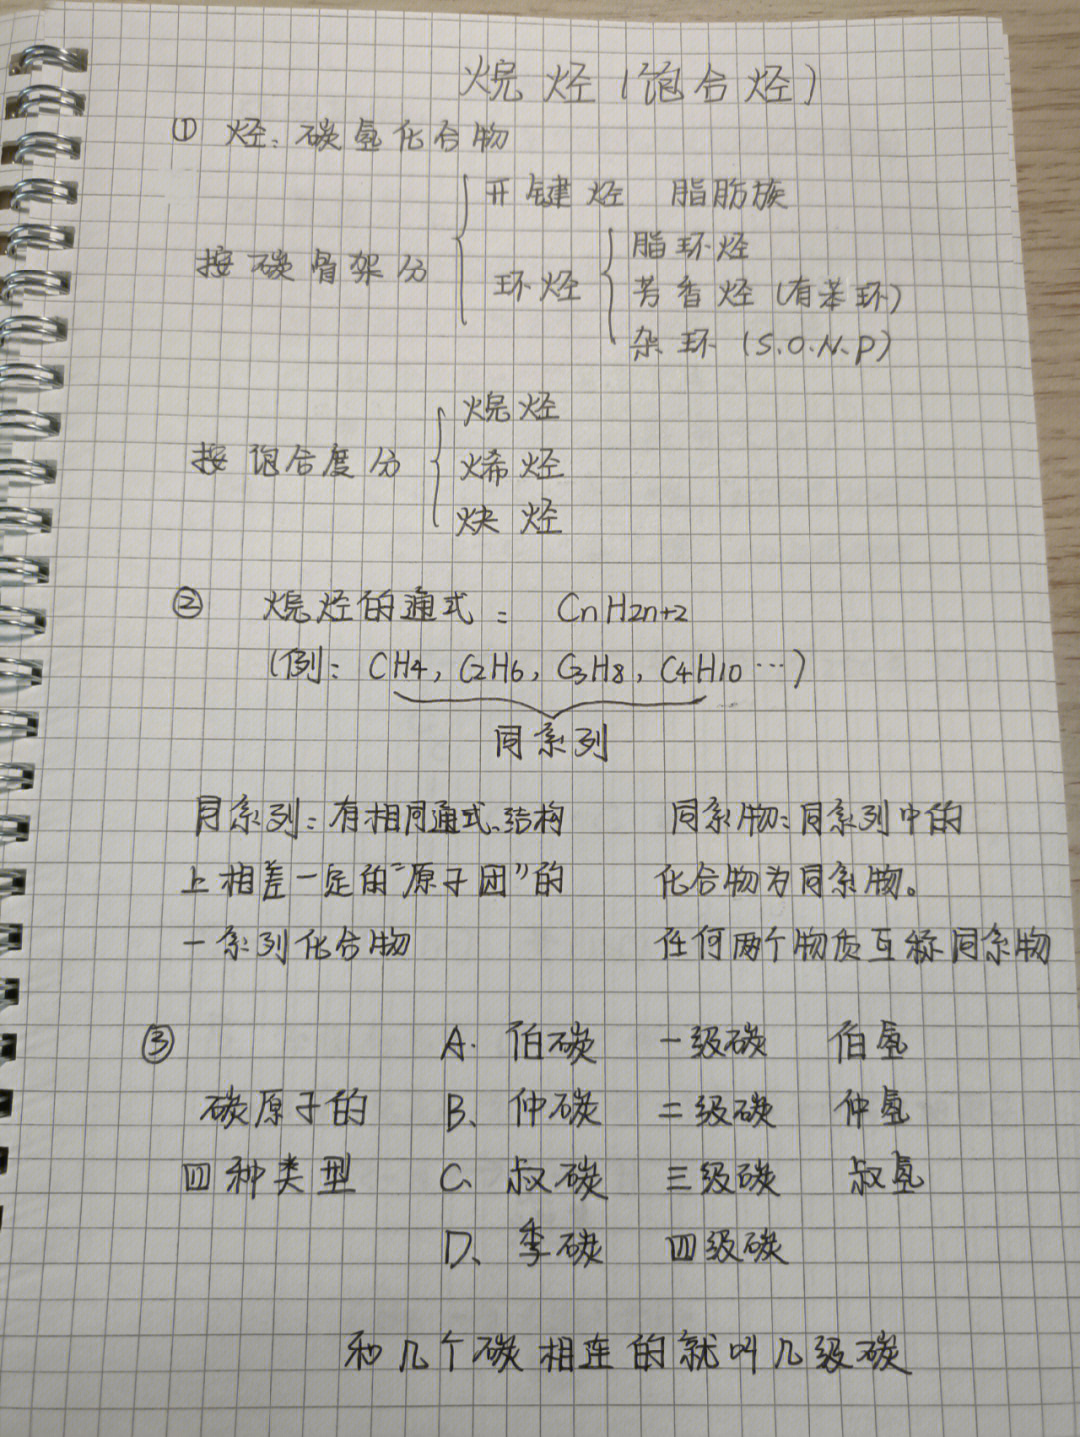 烷烃(饱合烃)
① 烃:碳氢化合物
开键烃 脂肪族
按碳骨架分 环烃
脂环烃
芳香烃(有苯环)
杂环(S.O.N.P)
烷烃
按饱合度分 烯烃
炔烃
② 烷烃的通式: CnH2n+2
(例: CH4, C2H6, C3H8, C4H10 …)
同系列
同系列:有相同通式、结构
上相差一定的"原子团"的
一系列化合物
同系物:同系列中的
化合物为同系物。
任何两个物质互称同系物
③ 碳原子的
四种类型
A. 伯碳 一级碳 伯氢
B、仲碳 二级碳 仲氢
C、叔碳 三级碳 叔氢
D、季碳 四级碳
和几个碳相连的就叫几级碳